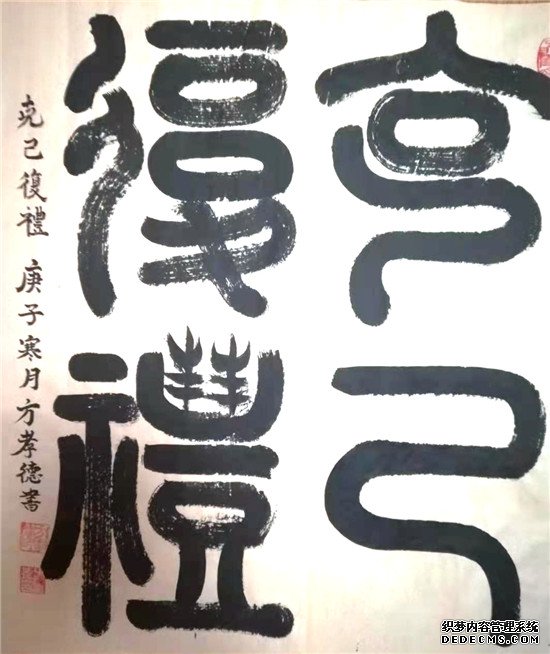 克己
復禮
克己復禮 庚子寒月方孝德書
织梦内容管理系统
DEDECMS.COM